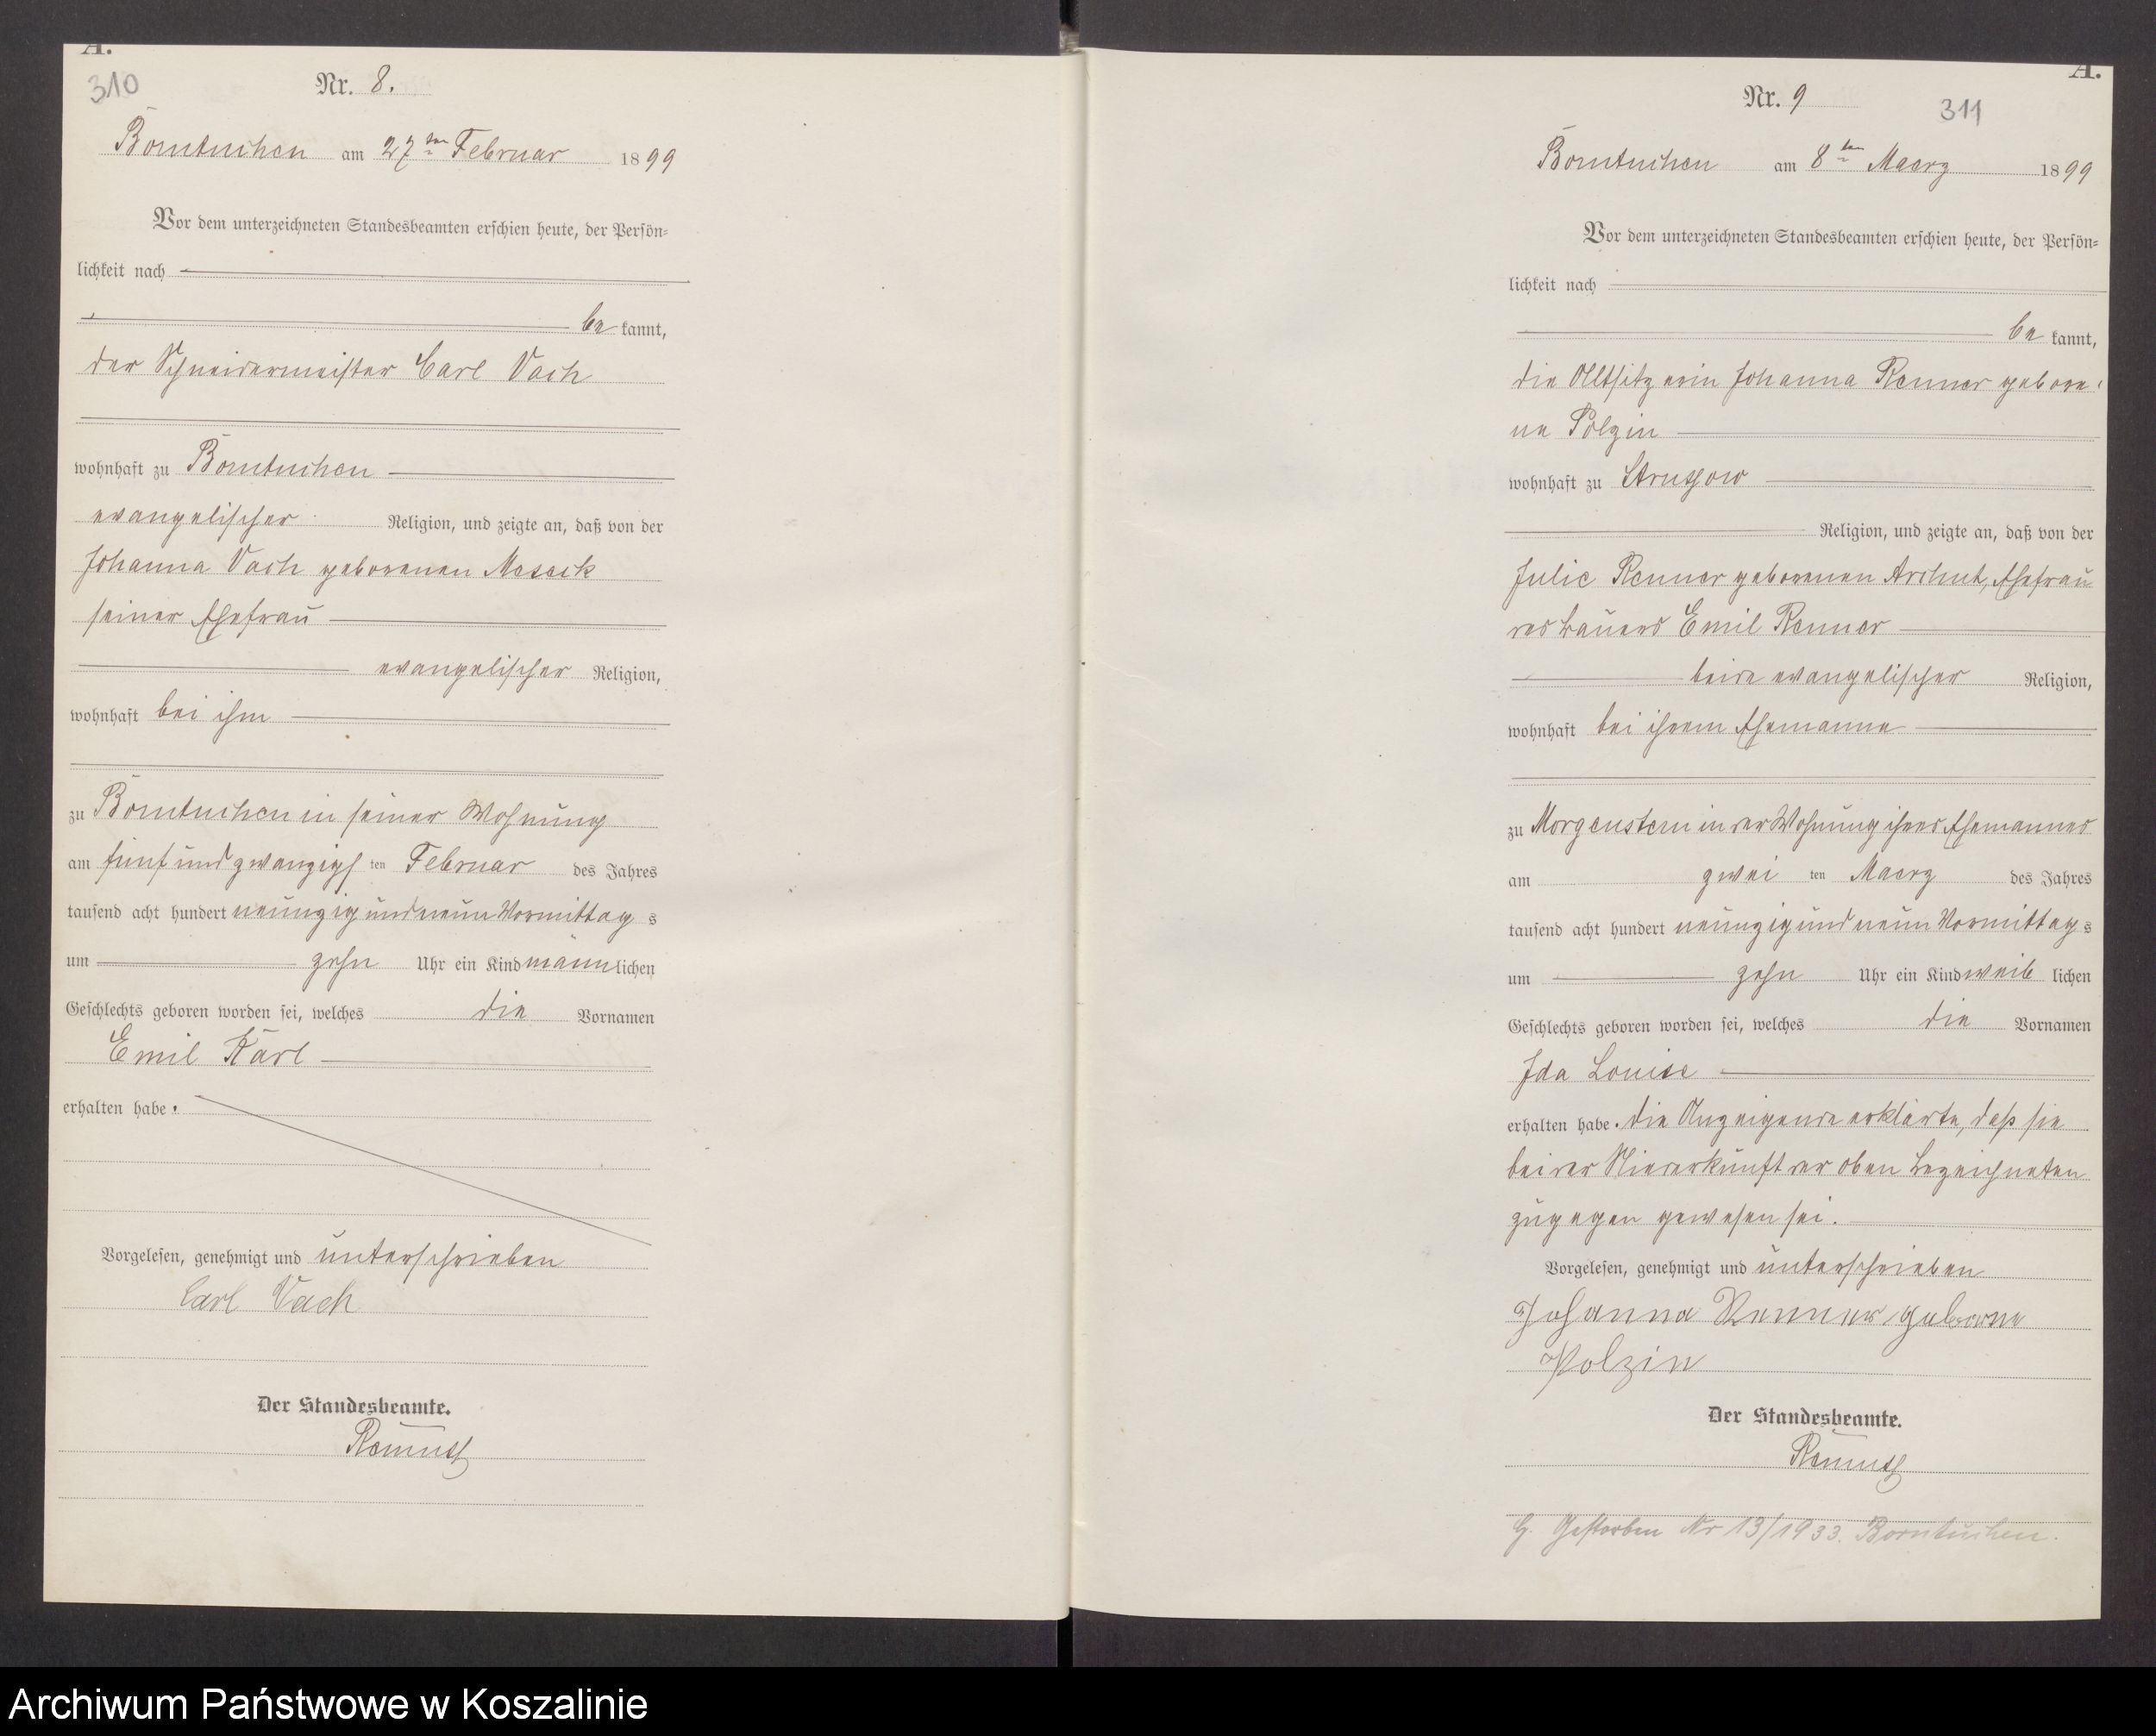 A.
310
Nr. 8.
Borntuchen am 27ten Februar 1899
Vor dem unterzeichneten Standesbeamten erschien heute, der Persön-
lichkeit nach
be kannt,
der Schneidermeister Carl Vach
wohnhaft zu Borntuchen
evangelischer Religion, und zeigte an, daß von der
Johanna Vach geborenen Meseck
seiner Ehefrau
evangelischer Religion,
wohnhaft bei ihm
zu Borntuchen in seiner Wohnung
am fünf und zwanzigs ten Februar des Jahres
tausend acht hundert neunzig und neun Vormittag s
um zehn Uhr ein Kind männlichen
Geschlechts geboren worden sei, welches die Vornamen
Emil Karl
erhalten habe.
Vorgelesen, genehmigt und unterschrieben
Carl Vach
Der Standesbeamte.
A.
Nr. 9
311
Borntuchen am 8ten Maerz 1899
Vor dem unterzeichneten Standesbeamten erschien heute, der Persön-
lichkeit nach
be kannt,
die Altsitzerin Johanna Renner gebore-
ne Polzin
wohnhaft zu Strussow
Religion, und zeigte an, daß von der
Julie Renner geborenen Archut, Ehefrau
des Bauers Emil Renner
beide evangelischer Religion,
wohnhaft bei ihrem Ehemanne
zu Morgenstern in der Wohnung ihres Ehemannes
am zwei ten Maerz des Jahres
tausend acht hundert neunzig und neun Vormittag s
um zehn Uhr ein Kind weib lichen
Geschlechts geboren worden sei, welches die Vornamen
Ida Louise
erhalten habe. Die Anzeigende erklärte, daß sie
bei der Niederkunft der oben bezeichneten
zugegen gewesen sei.
Vorgelesen, genehmigt und unterschrieben
Johanna Renner geborne
Polzin
Der Standesbeamte.
G. Gestorben Nr 13/1933. Borntuchen.
Archiwum Państwowe w Koszalinie